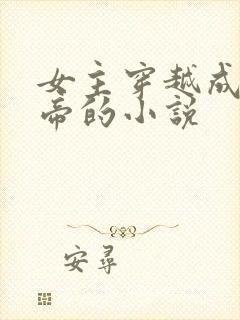 女主穿越成
帝的小说
安寻